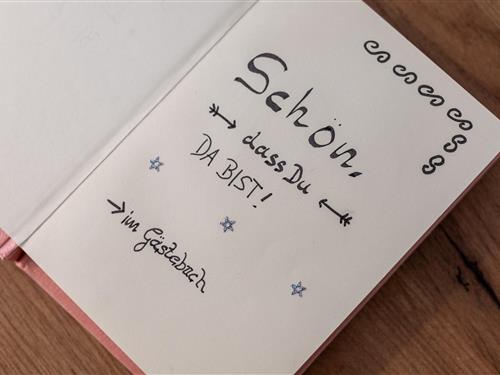 Schön,
dass Du
DA BIST!
im Gästebuch